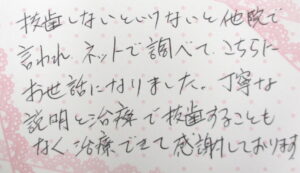 抜歯しないといけないと他院で
言われ ネットで調べて、こちらに
お世話になりました。丁寧な
説明と治療で抜歯することも
なく治療できて感謝しております